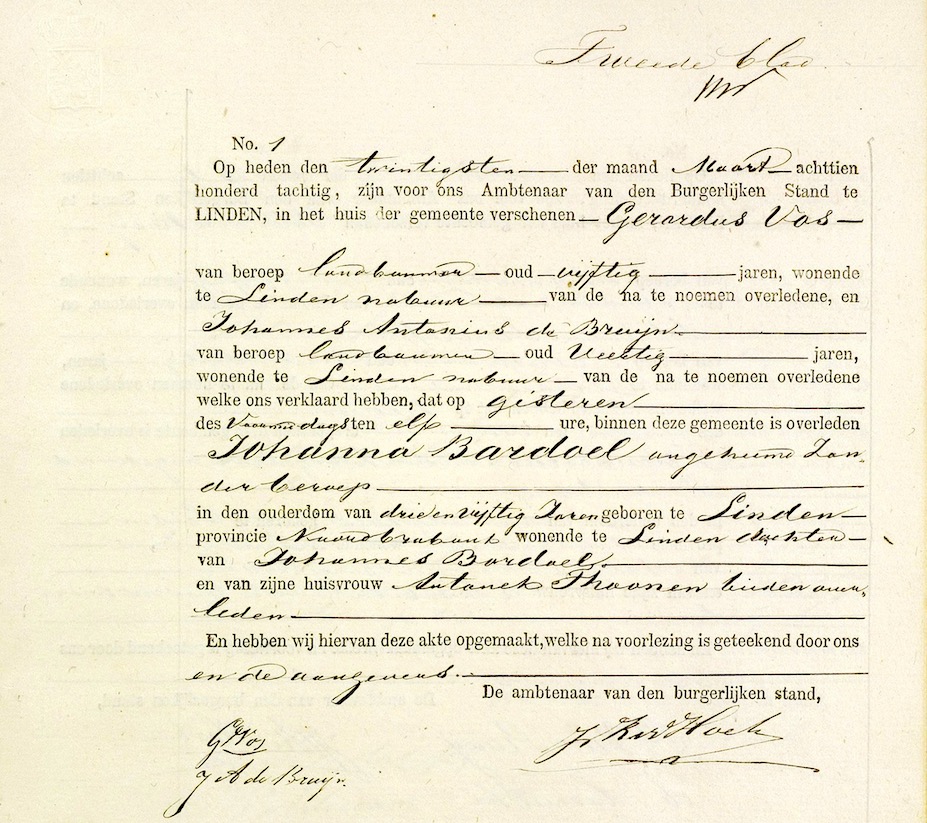 Tweede blad.
No. 1
Op heden den twintigsten der maand Maart achttien
honderd tachtig, zijn voor ons Ambtenaar van den Burgerlijken Stand te
LINDEN, in het huis der gemeente verschenen Gerardus Vos
van beroep landbouwer oud vijftig jaren, wonende
te Linden nabuur van de na te noemen overledene, en
Johannes Antonius de Bruijn
van beroep landbouwer oud Veertig jaren,
wonende te Linden nabuur van de na te noemen overledene
welke ons verklaard hebben, dat op gisteren
des Voormiddags ten elf ure, binnen deze gemeente is overleden
Johanna Bardoel ongehuwd Zon-
der beroep
in den ouderdom van drie en vijftig Jaren geboren te Linden
provincie Noordbrabant wonende te Linden dochter
van Johannes Bardoel
en van zijne huisvrouw Antonet Thoonen beiden over-
leden
En hebben wij hiervan deze akte opgemaakt, welke na voorlezing is geteekend door ons
en de aangevers.
De ambtenaar van den burgerlijken stand,
G Vos
J A de Bruijn.